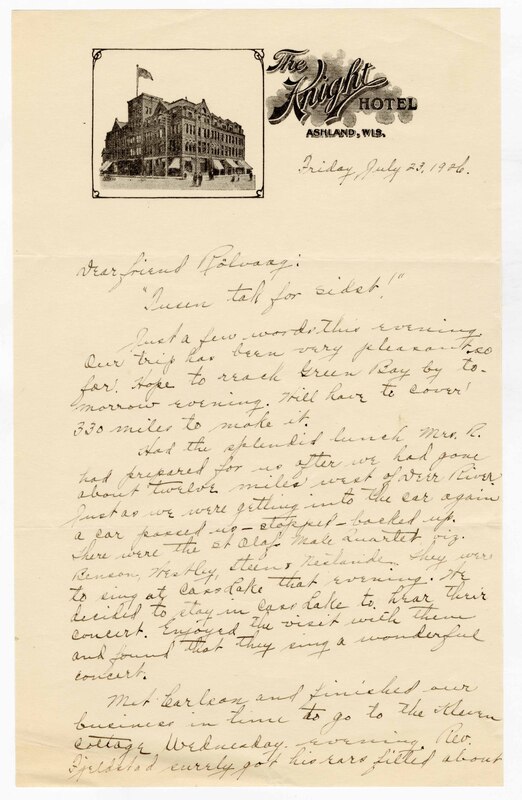 The
Knight
HOTEL
ASHLAND, WIS.
Friday, July 23, 1926.
Dear friend Rölvaag:
"Tusen tak for sidst!"
Just a few words this evening
Our trip has been very pleasant so
far. Hope to reach Green Bay by to-
morrow evening. Will have to cover
330 miles to make it.
Had the splendid lunch Mrs. R.
had prepared for us after we had gone
about twelve miles west of Deer River.
Just as we were getting into the car again
a car passed us - stopped - backed up.
There were the St Olaf Male Quartet viz.
Benson, Westley, Steen & Neslande. They were
to sing at Cass Lake that evening. We
decided to stay in Cass Lake to hear their
concert. Enjoyed the visit with them
and found that they sing a wonderful
concert.
Met Carlson and finished our
business in time to go to the Kleven
cottage Wednesday evening. Rev.
Fjeldstad surely got his ears filled about